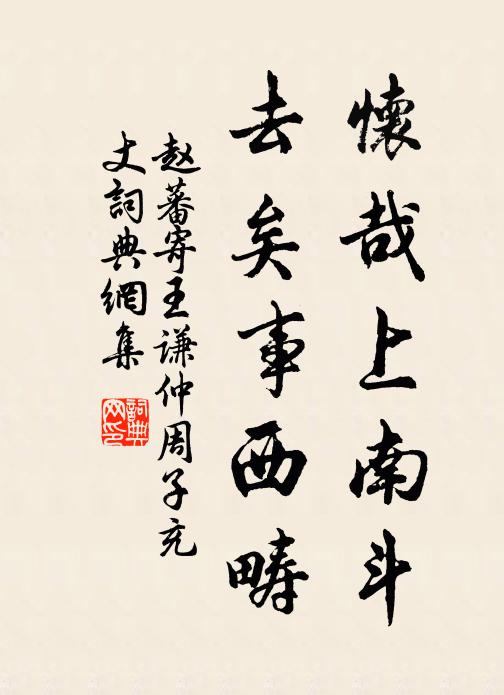 懷哉上南斗
去矣事西疇
赵蕃寄王謙仲周子充
丈詞典網集
詞典網印